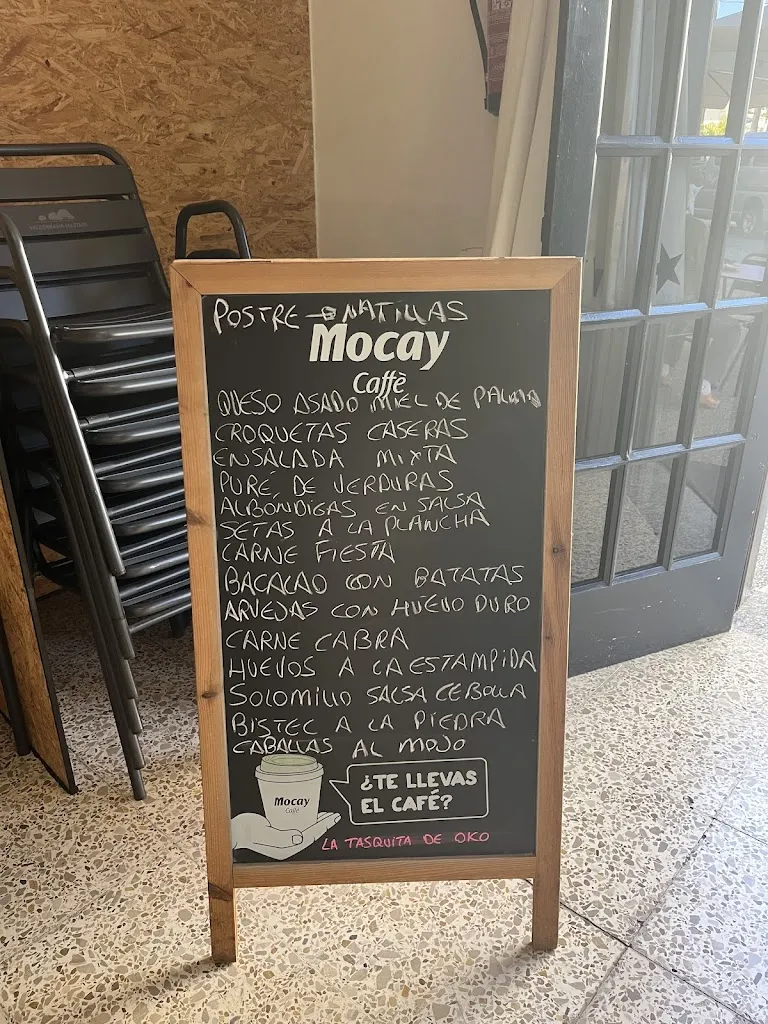 POSTRE → NATILLAS
Mocay
Caffè
QUESO ASADO MIEL DE PALMA
CROQUETAS CASERAS
ENSALADA MIXTA
PURÉ DE VERDURAS
ALBONDIGAS EN SALSA
SETAS A LA PLANCHA
CARNE FIESTA
BACALAO CON BATATAS
ARVEJAS CON HUEVO DURO
CARNE CABRA
HUEVOS A LA ESTAMPIDA
SOLOMILLO SALSA CEBOLLA
BISTEC A LA PIEDRA
CABALLAS AL MOJO
Mocay
Caffè
¿TE LLEVAS
EL CAFÉ?
LA TASQUITA DE OKO